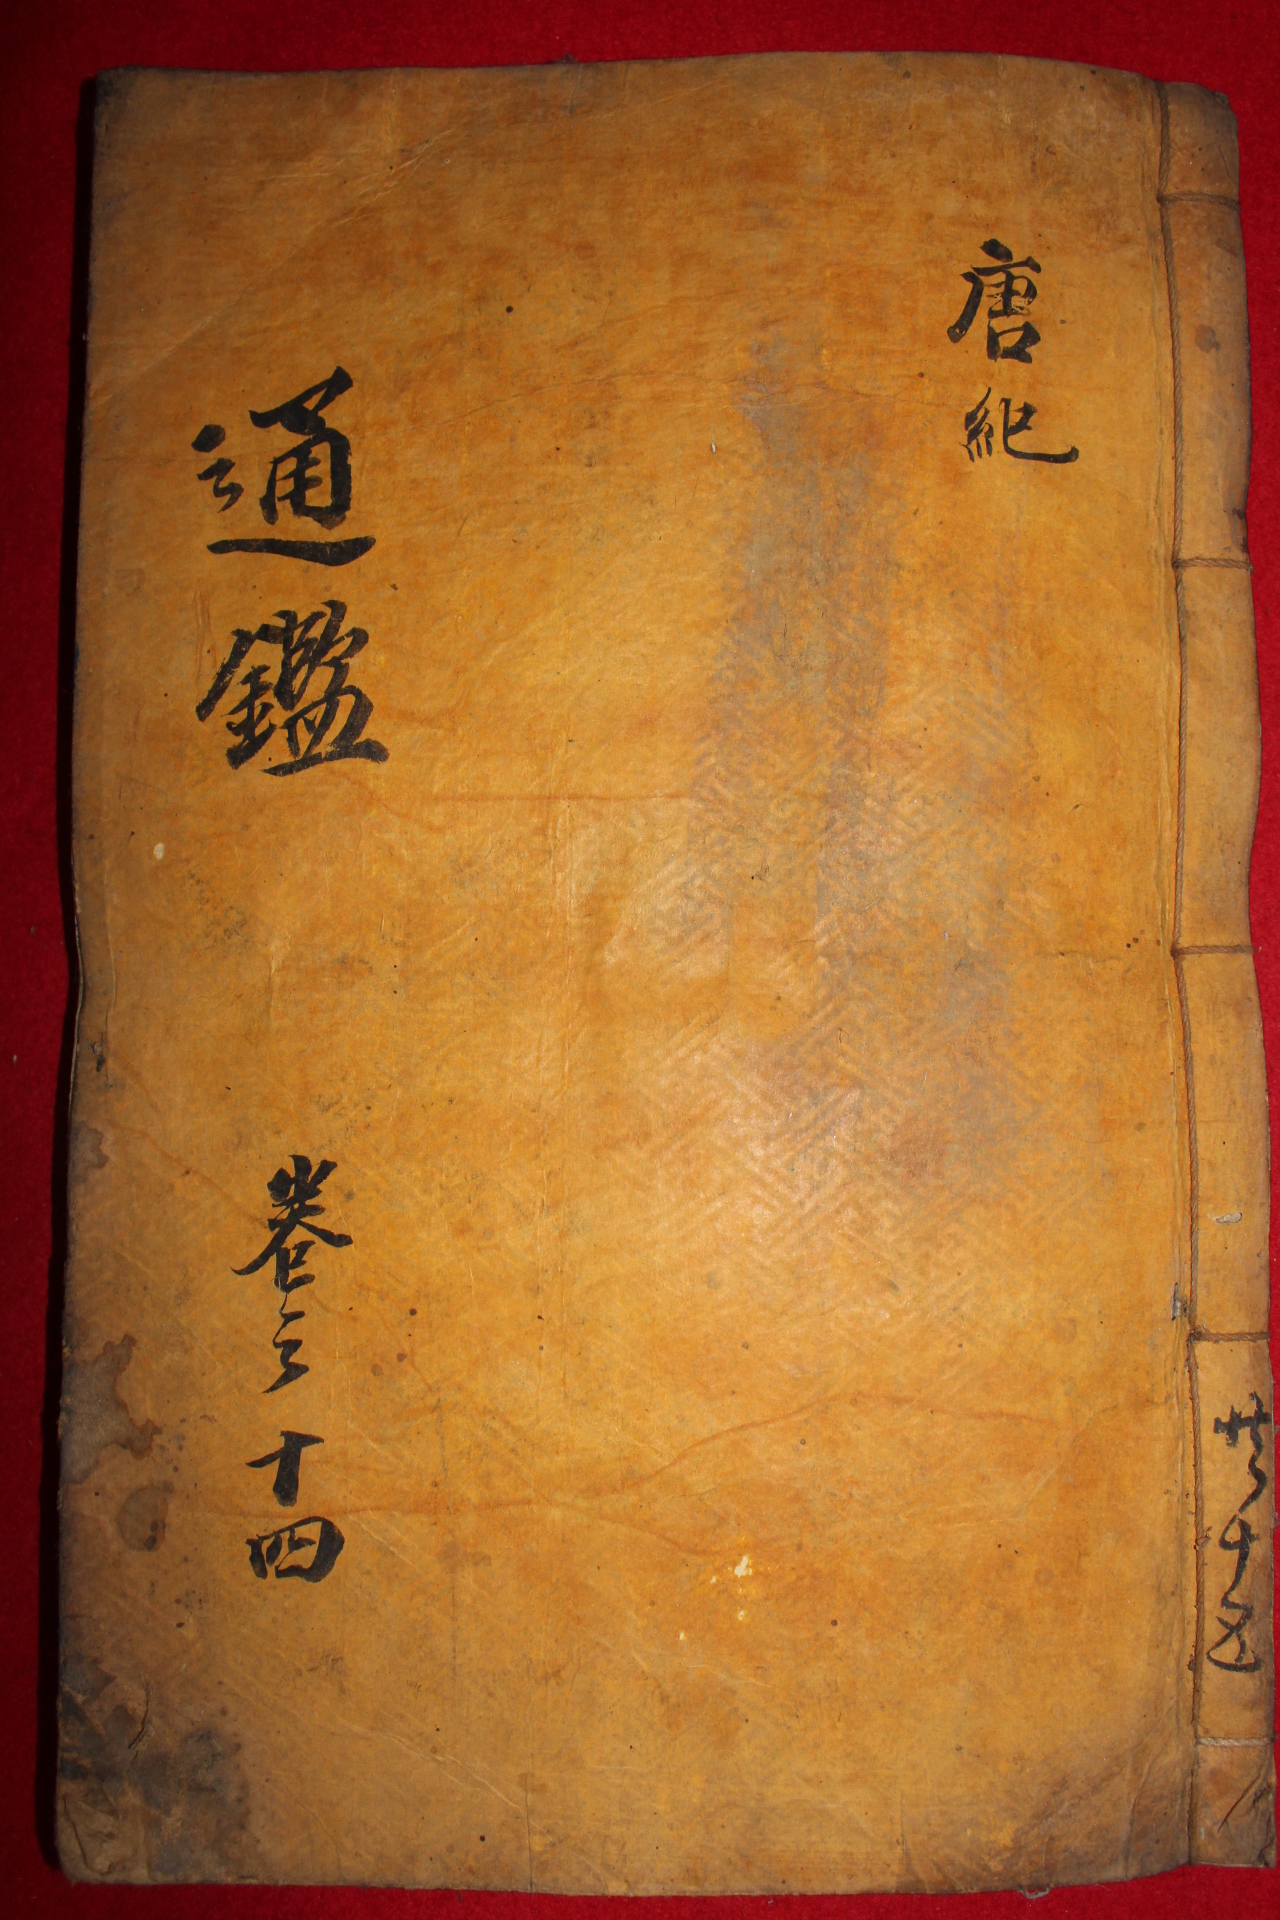 共十五
唐紀
通鑑 卷之十四